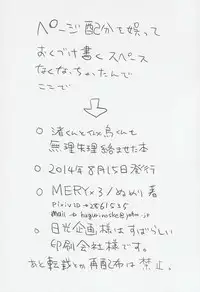 ページ配分を誤って
おくづけ書くスペース
なくなっちゃったんで
ここで
↓
○ 渚くんと似鳥くんを
無理矢理絡ませた本
○ 2014年8月15日発行
○ MERY×3/ぬめり著
pixiv ID→2861535
○ 日光企画様はすばらしい
印刷会社様です。
あと転載とか再配布は禁止。